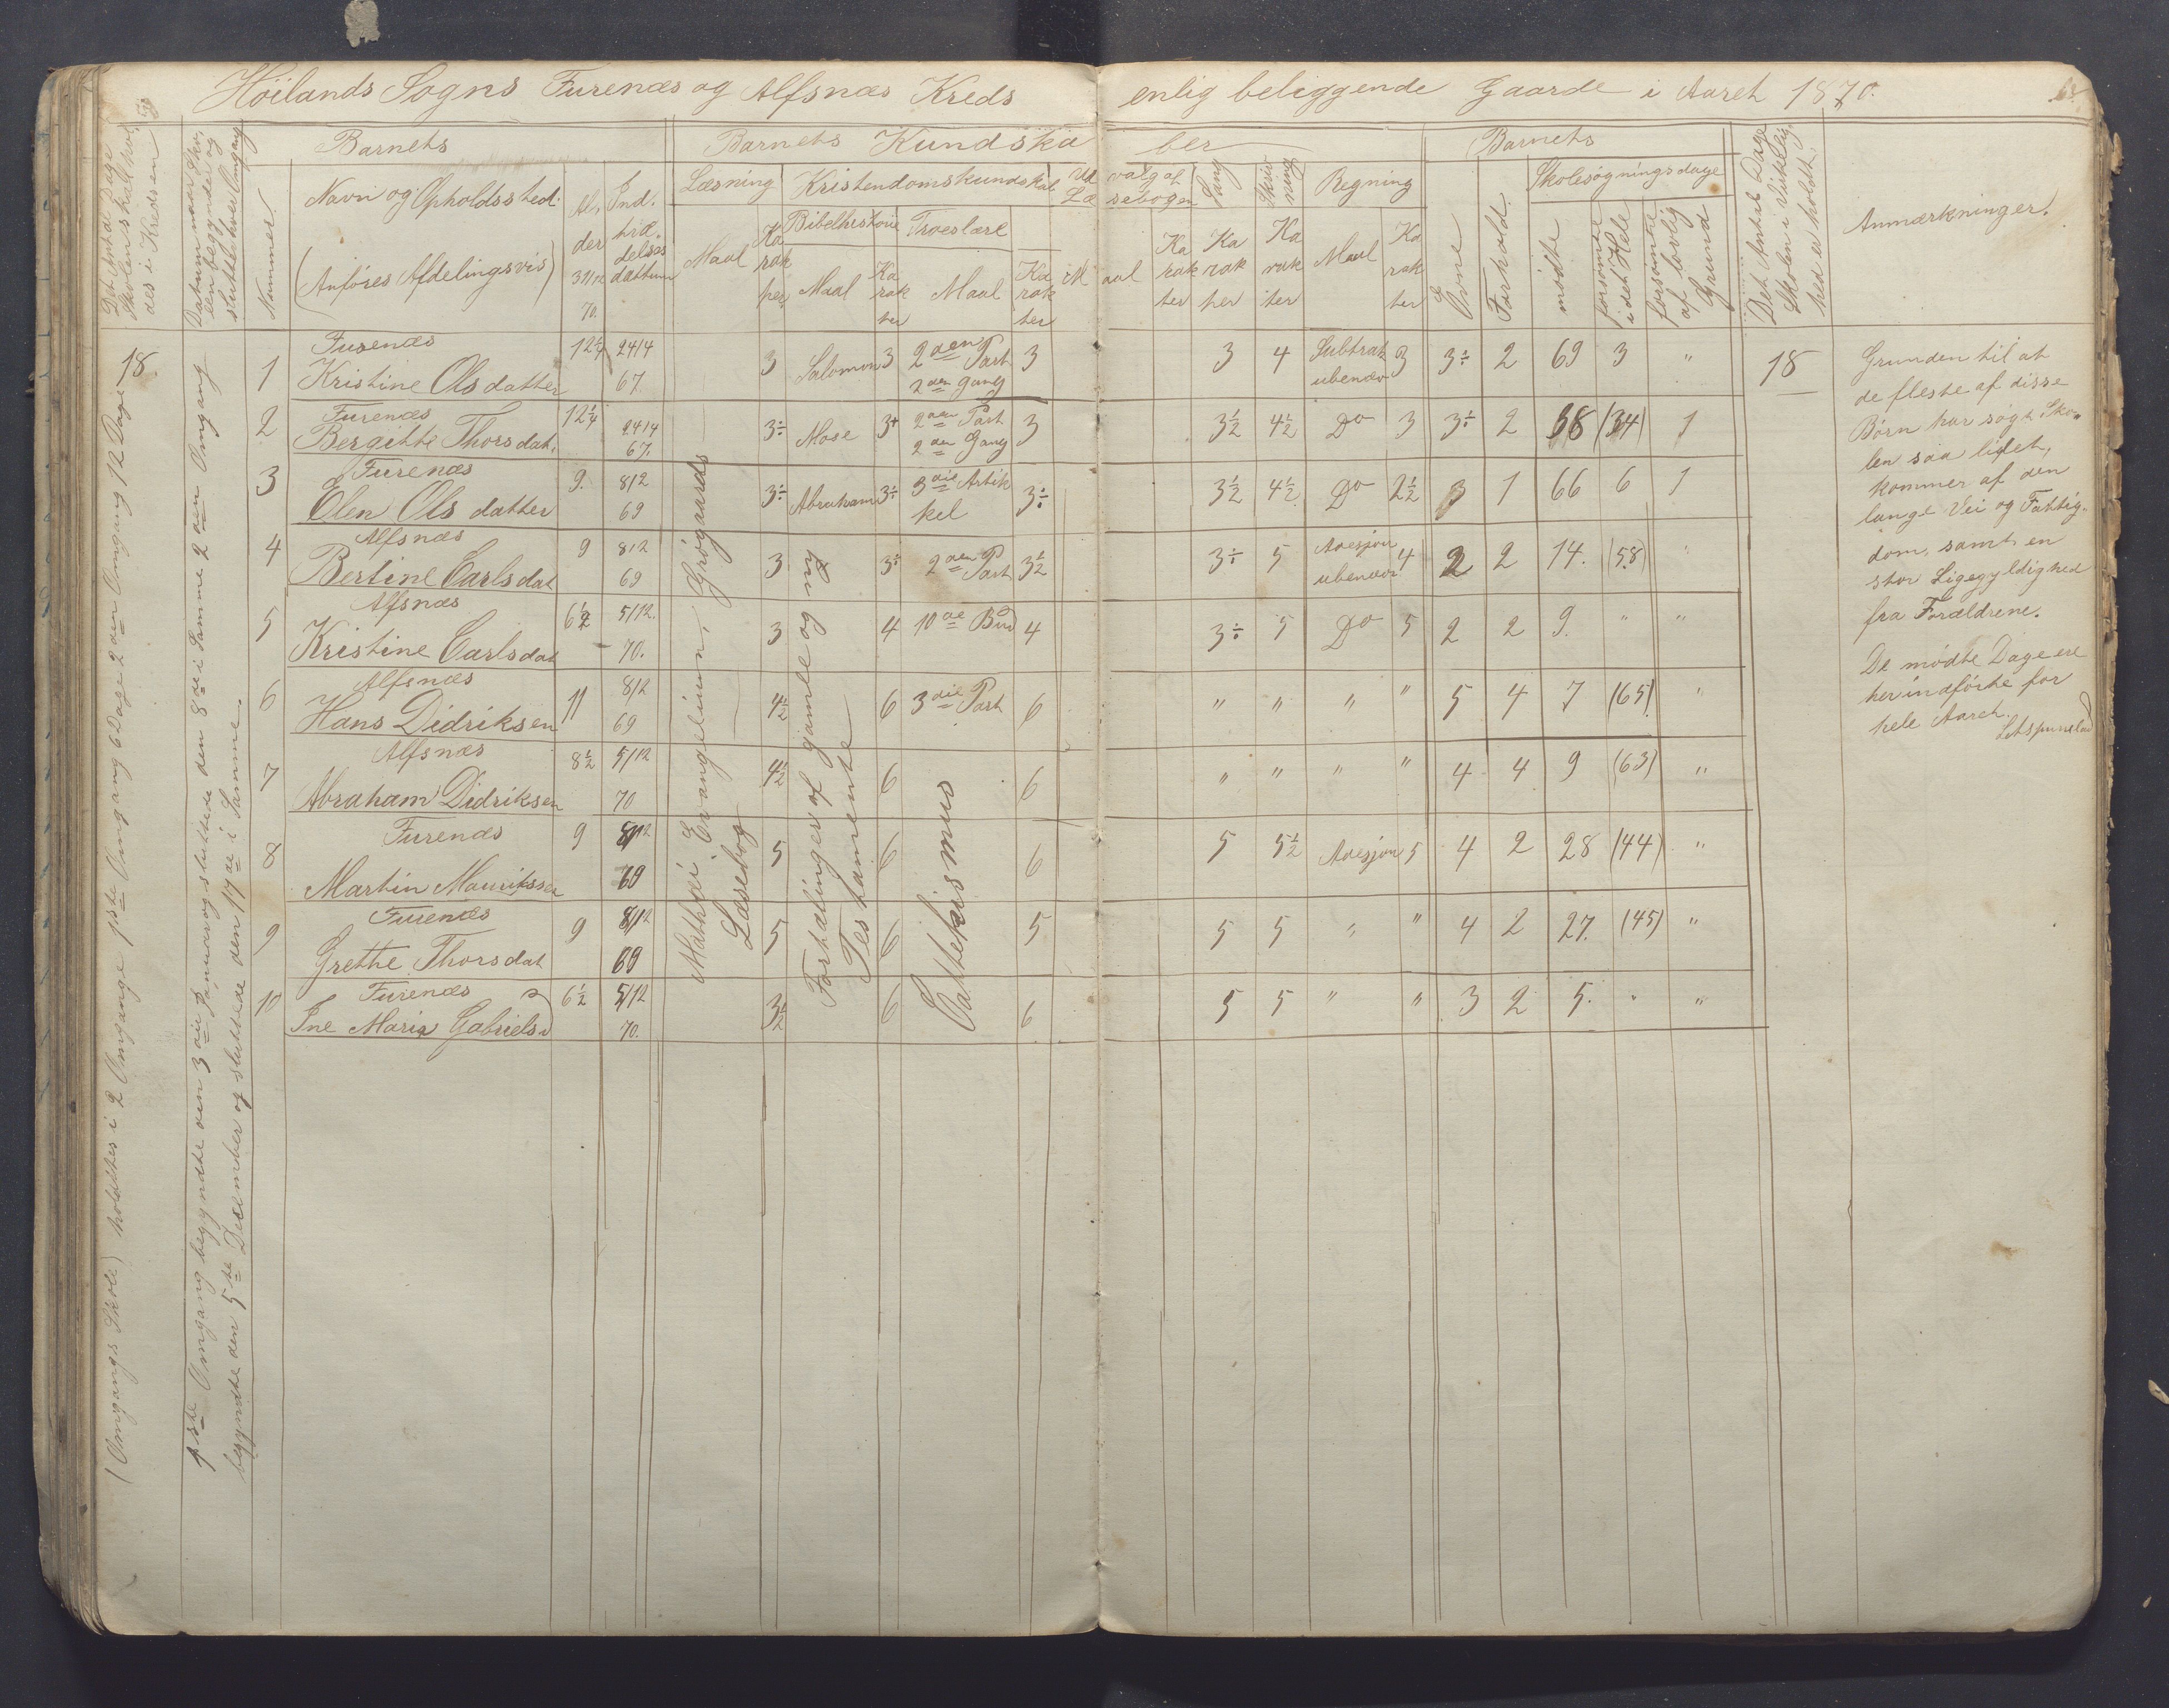 Höilands Sogns Furenæs og Alfsnæs Kreds enlig beliggende Gaarde i Aaret 1870.
Det Antal Dage Skolen skal holdes i Kredsen
Datum naar Skolen begynder og sluttes hver Omgang
Nummer
Barnets
Navn og Opholdssted.
(Anföres Afdelingsvis)
Alder 31/12 70.
Indtrædelses dattum
Barnets Kundskaber
Læsning
Maal
Karakter
Kristendomskundskab
Bibelhistorie
Maal
Karakter
Troeslære
Maal
Karakter
Udvalg af Læsebogen
Maal
Karakter
Sang
Karakter
Skrivning
Karakter
Regning
Maal
Karakter
Barnets
Evne
Forhold.
Skolesögningsdage
mödte
forsömte i det Hele
forsömte af lovlig Grund
Det Antal Dage Skolen i Virkelighed er holdt.
Anmærkninger.
18.
(Omgangs Skole) holdtes i 2 Omgange 1ste Omgang 6 Dage 2den Omgang 12 Dage
1ste Omgang begyndte den 3die Januar og sluttede den 8de i Samme 2den Omgang
begyndte den 5te December og sluttede den 17de i Samme.
Matthæi Evangelium, Grøgaards
Læsebog
Fortællinger af gamle og ny
Testamente
Cattekismus
1 Furenæs Kristine Olsdatter 12 1/4 24/4 67. 3 Salomon 3 2den Part 2den gang 3 3 4 Subtrak ubenæv 3 3÷ 2 69 3 " 18
2 Furenæs Bergitte Thorsdat. 12 1/4 24/4 67. 3÷ Mose 3+ 2den Part 2den Gang 3 3 1/2 4 1/2 Do 3 3÷ 2 38 (34) 1
3 Furenæs Elen Olsdatter 9. 8/2 69 3÷ Abraham 3÷ 3die Artikkel 3÷ 3 1/2 4 1/2 Do 2 1/2 3 1 66 6 1
4 Alfsnæs Bertine Carlsdat 9 8/2 69 3 3÷ 2den Part 3 1/2 3÷ 5 Adesjon ubenævn 4 2 2 14. (58) "
5 Alfsnæs Kristine Carlsdat 6 1/2 5/12. 70. 3 4 10de Bud 4 3÷ 5 Do 5 2 2 9. " "
6 Alfsnæs Hans Didriksen 11 8/2 69 4 1/2 6 3die Part 6 " " " " 5 4 7 (65) "
7 Alfsnæs Abraham Didriksen 8 1/2 5/12 70 4 1/2 6 6 " " " " 4 4 9 (63) "
8 Furenæs Martin Mauritssen 9 8/12 69 5 6 6 5 5 1/2 Adesjon 5 4 2 28 (44) "
9 Furenæs Grethe Thorsdat 9 8/12 69 5 6 5 5 5 " " 4 2 27. (45) "
10 Furenæs Ine Maria Gabrielsd 6 1/2 5/12 70. 3 1/2 6 6 5 5 " " 3 2 5. " "
Grunden til at
de fleste af disse
Börn har sögt Sko-
len saa lidet,
kommer af den
lange Vei og Fattig-
dom, samt en
stor Ligegyldighed
fra Forældrene.
De mödte Dage ere
her indförte for
hele Aaret.